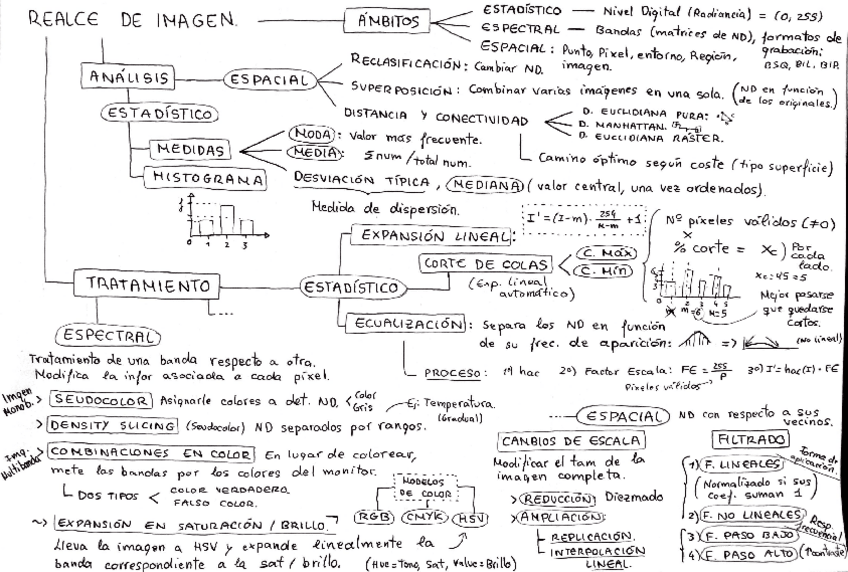 REALCE DE IMAGEN.
ÁMBITOS
ESTADÍSTICO — Nivel Digital (Radiancia) = (0, 255)
ESPECTRAL — Bandas (matrices de ND), formatos de grabación:
BSQ, BIL, BIP.
ESPACIAL: Punto, Pixel, entorno, Región, imagen.
ANÁLISIS
ESPACIAL
RECLASIFICACIÓN: Cambiar ND.
SUPERPOSICIÓN: Combinar varias imágenes en una sola. (ND en función de los originales.)
DISTANCIA Y CONECTIVIDAD
D. EUCLIDIANA PURA:
D. MANHATTAN.
D. EUCLIDIANA RASTER.
Camino óptimo según coste (tipo superficie)
ESTADÍSTICO
MEDIDAS
MODA: valor más frecuente.
MEDIA: Σnum / total num.
DESVIACIÓN TÍPICA, MEDIANA (valor central, una vez ordenados).
Medida de dispersión.
HISTOGRAMA
f
0 1 2 3
TRATAMIENTO
...
ESTADÍSTICO
EXPANSIÓN LINEAL:
I' = (I-m) · 254/M-m + 1
CORTE DE COLAS
(Exp. lineal automático)
C. Máx
C. Mín
Nº píxeles válidos (≠0)
x
% corte = xc) Por cada lado.
xc=4.5≈5
Mejor pasarse que quedarse cortos.
ECUALIZACIÓN: Separa los ND en función
de su frec. de aparición: => (No lineal)
PROCESO: 1º) hac 2º) Factor Escala: FE = 255/P 3º) I' = hac(I) · FE
Píxeles válidos
ESPECTRAL
Tratamiento de una banda respecto a otra.
Modifica la infor asociada a cada píxel.
Imagen Monob.
> SEUDOCOLOR Asignarle colores a det. ND. < Color Gris
Ej: Temperatura.
(Gradual)
> DENSITY SLICING (Seudocolor) ND separados por rangos.
Img. Multibanda
> COMBINACIONES EN COLOR En lugar de colorear,
mete las bandas por los colores del monitor.
DOS TIPOS < COLOR VERDADERO.
FALSO COLOR.
MODELOS DE COLOR
RGB CMYK HSV
~> EXPANSIÓN EN SATURACIÓN / BRILLO.
Lleva la imagen a HSV y expande linealmente la
banda correspondiente a la sat / brillo. (Hue=Tono, Sat, Value=Brillo)
... ESPACIAL ND con respecto a sus vecinos.
CAMBIOS DE ESCALA
Modificar el tam de la
imagen completa.
> REDUCCIÓN Diezmado
> AMPLIACIÓN:
REPLICACIÓN.
INTERPOLACIÓN LINEAL.
FILTRADO
Forma de aplicación.
1) F. LINEALES
(Normalizado si sus coef. suman 1)
2) F. NO LINEALES
3) F. PASO BAJO
4) F. PASO ALTO